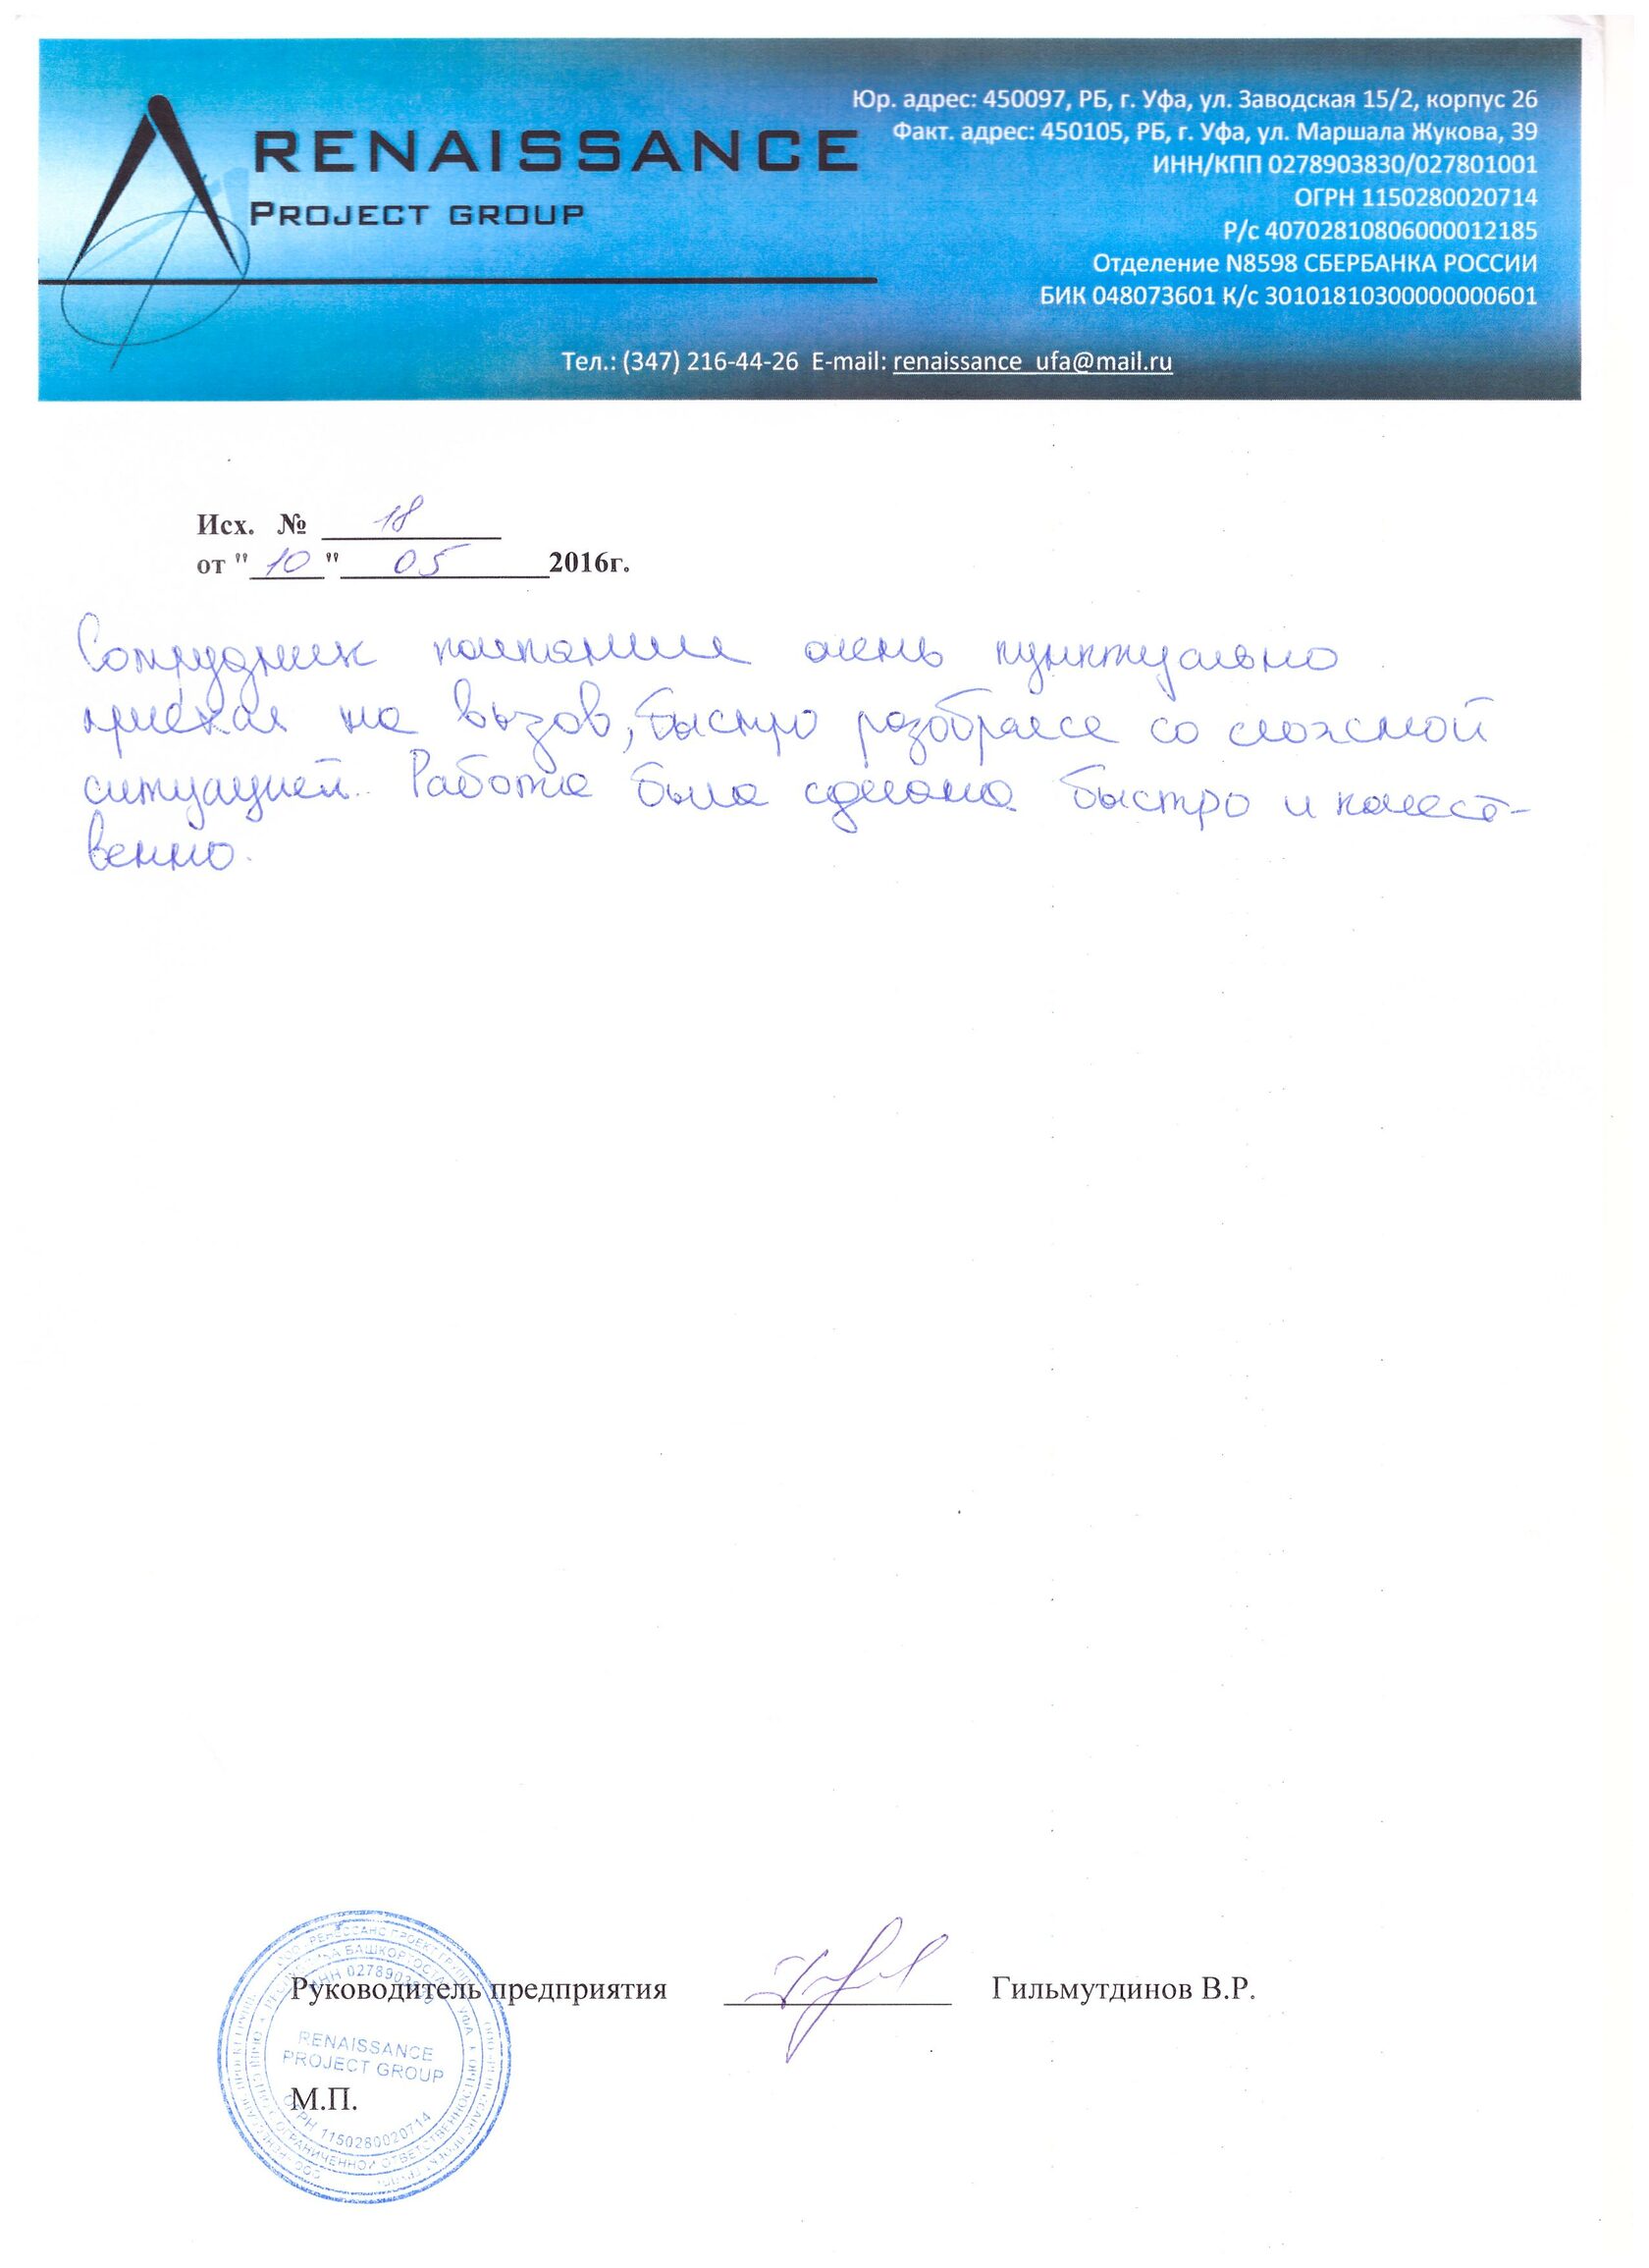 RENAISSANCE
PROJECT GROUP
Юр. адрес: 450097, РБ, г. Уфа, ул. Заводская 15/2, корпус 26
Факт. адрес: 450105, РБ, г. Уфа, ул. Маршала Жукова, 39
ИНН/КПП 0278903830/027801001
ОГРН 1150280020714
Р/с 40702810806000012185
Отделение N8598 СБЕРБАНКА РОССИИ
БИК 048073601 К/с 30101810300000000601
Тел.: (347) 216-44-26 E-mail: renaissance_ufa@mail.ru
Исх. № 18
от "10" 05 2016г.
Сотрудник компании очень пунктуально
приехал на вызов, быстро разобрался со сложной
ситуацией. Работа была сделана быстро и качест-
венно.
Руководитель предприятия Гильмутдинов В.Р.
RENAISSANCE
PROJECT GROUP
М.П.
ОГРН 1150280020714